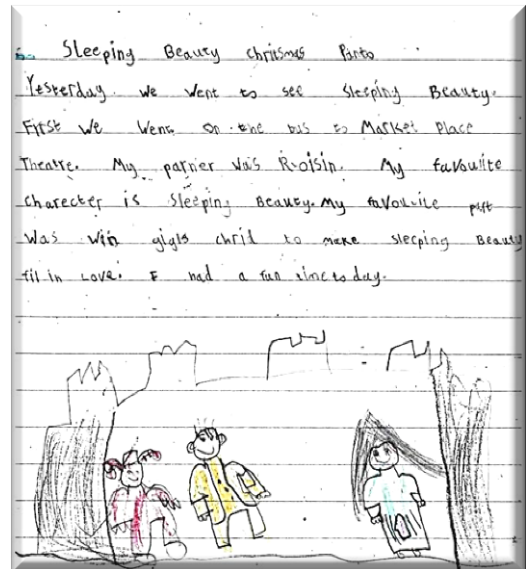 Sleeping Beauty chritsmas Panto
Yesterday. we went to see Sleeping Beauty.
First we went on the bus to Market Place
Theatre. My parner was Roisin. My favouUite
charecter is Sleeping Beauty. My favouUite part
was win gigls chrid to make sleeping Beauty
fil in Love. I had a fun time to day.